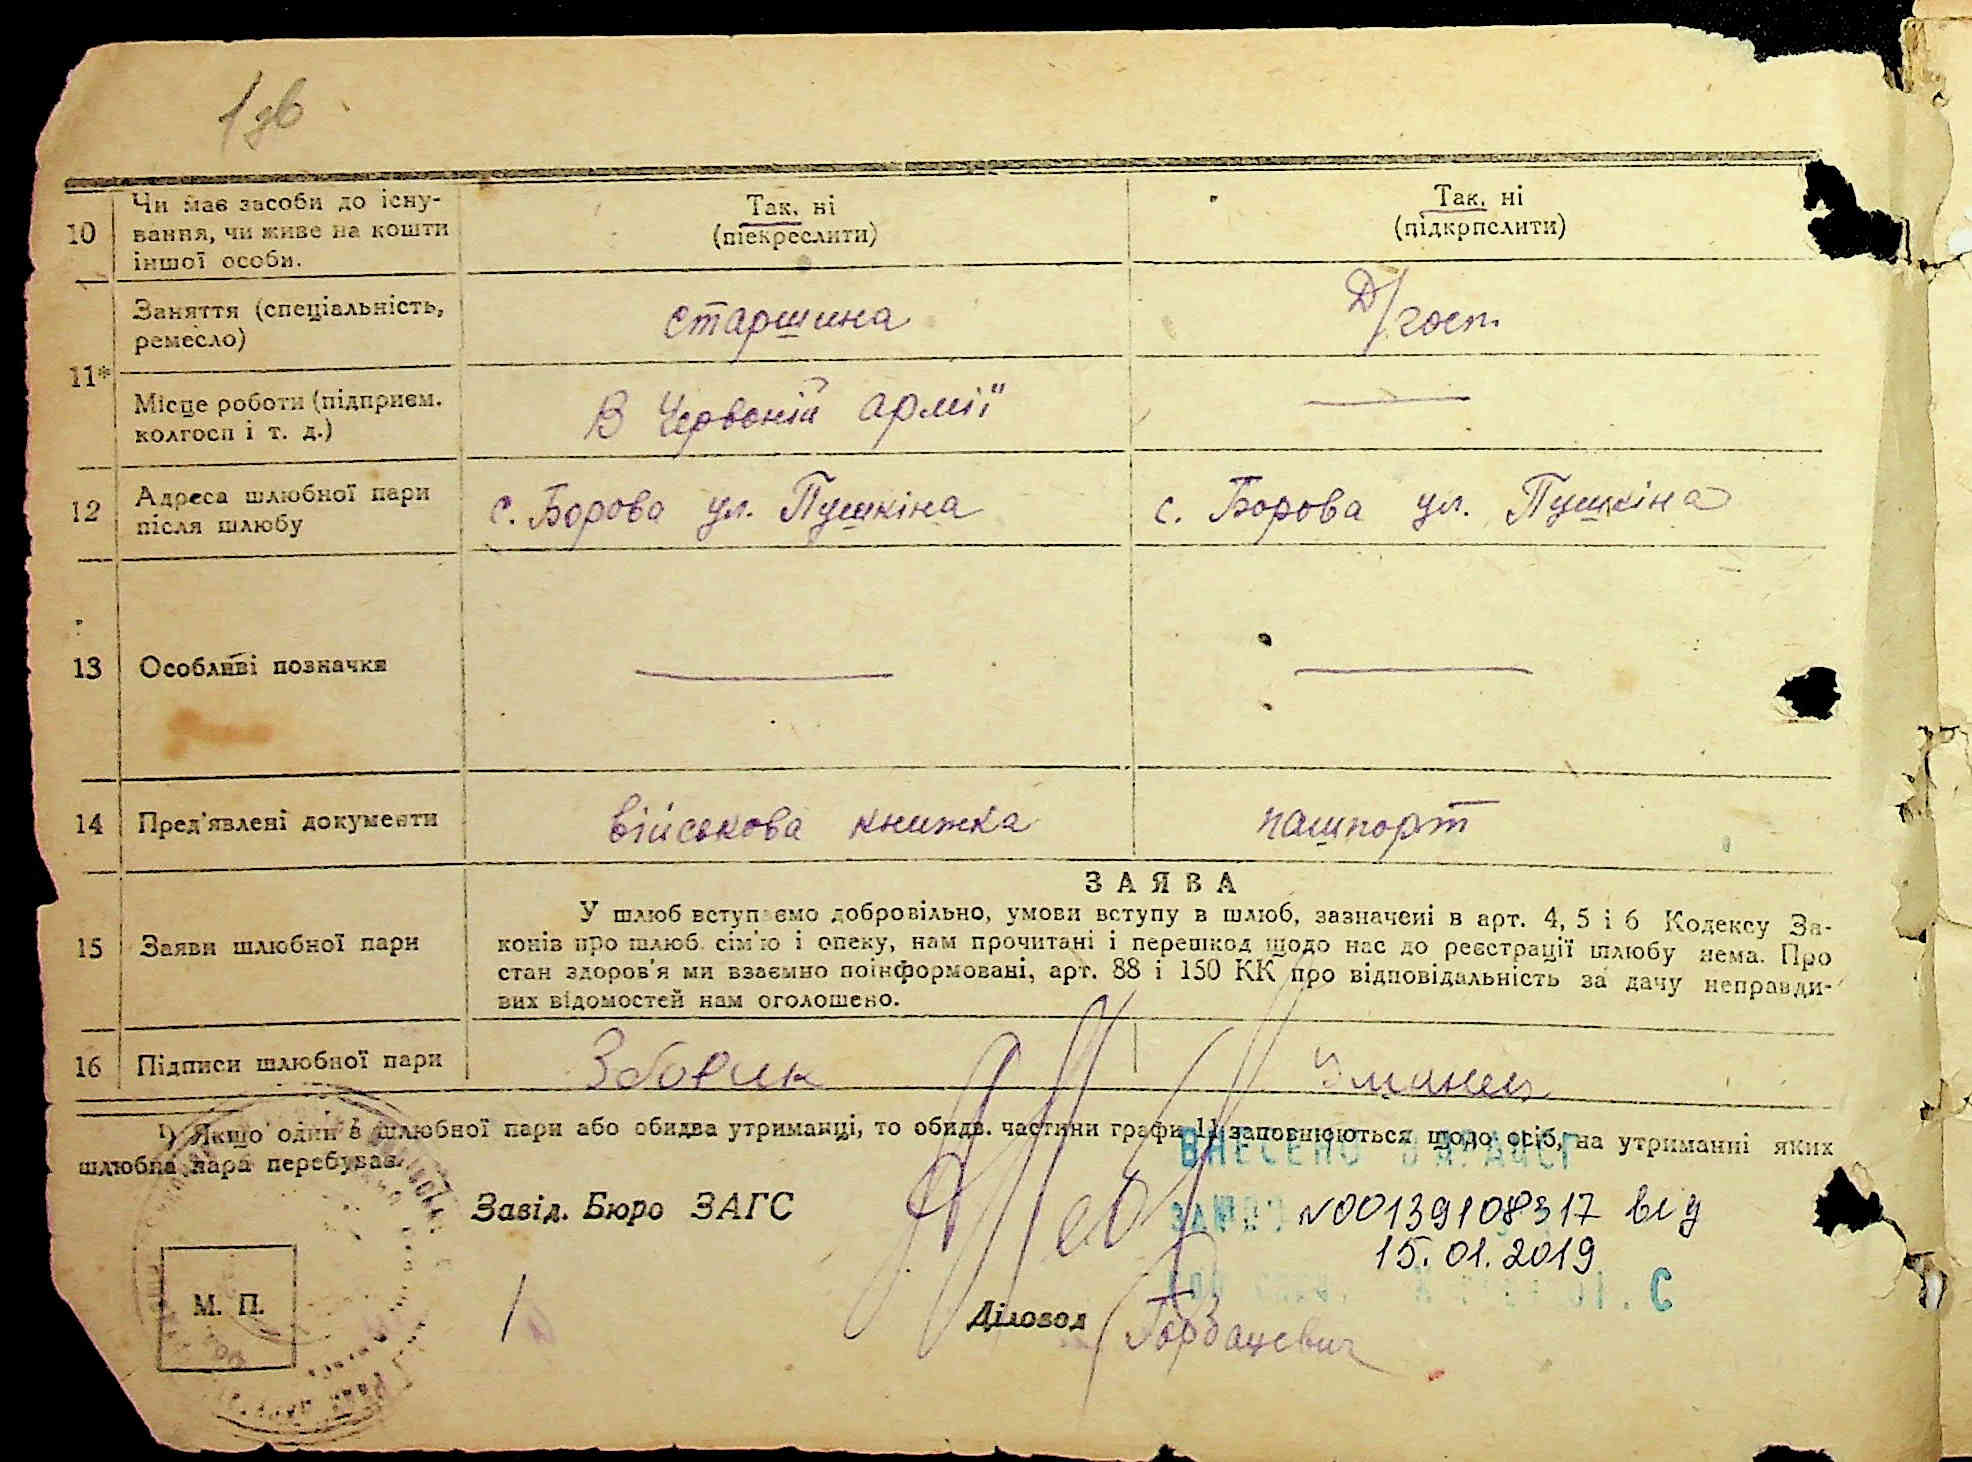 1 зв
10
Чи має засоби до існу-
вання, чи живе на кошти
іншої особи.
Так, ні
(піекреслити)
Так, ні
(підкрпслити)
11*
Заняття (спеціальність,
ремесло)
старшина
Д/госп.
Місце роботи (підприєм.
колгосп і т. д.)
В Червоній армії
12
Адреса шлюбної пари
після шлюбу
с. Борова ул. Пушкіна
с. Борова ул. Пушкіна
13
Особливі позначки
14
Пред'явлені документи
військова книжка
пашпорт
15
Заяви шлюбної пари
ЗАЯВА
У шлюб вступаємо добровільно, умови вступу в шлюб, зазначені в арт. 4, 5 і 6 Кодексу За-
конів про шлюб, сім'ю і опеку, нам прочитані і перешкод щодо нас до реєстрації шлюбу нема. Про
стан здоров'я ми взаємно поінформовані, арт. 88 і 150 КК про відповідальність за дачу неправди-
вих відомостей нам оголошено.
16
Підписи шлюбної пари
Зборик
1) Якщо один з шлюбної пари або обидва утриманці, то обидв. частини графи 11 заповнюються щодо осіб, на утриманні яких
шлюбна пара перебуває.
ВНЕСЕНО
Завід. Бюро ЗАГС
№00139108317 від
15.01.2019
М. П.
Діловод
Горбацевич